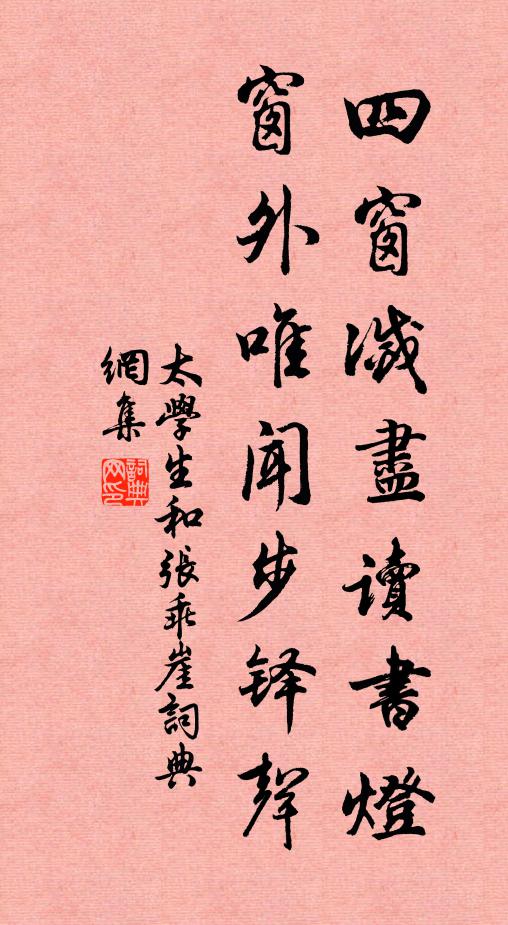 四窗滅盡讀書燈
窗外唯闻步铎聲
太學生和張乖崖詞典
網集
詞典
网印